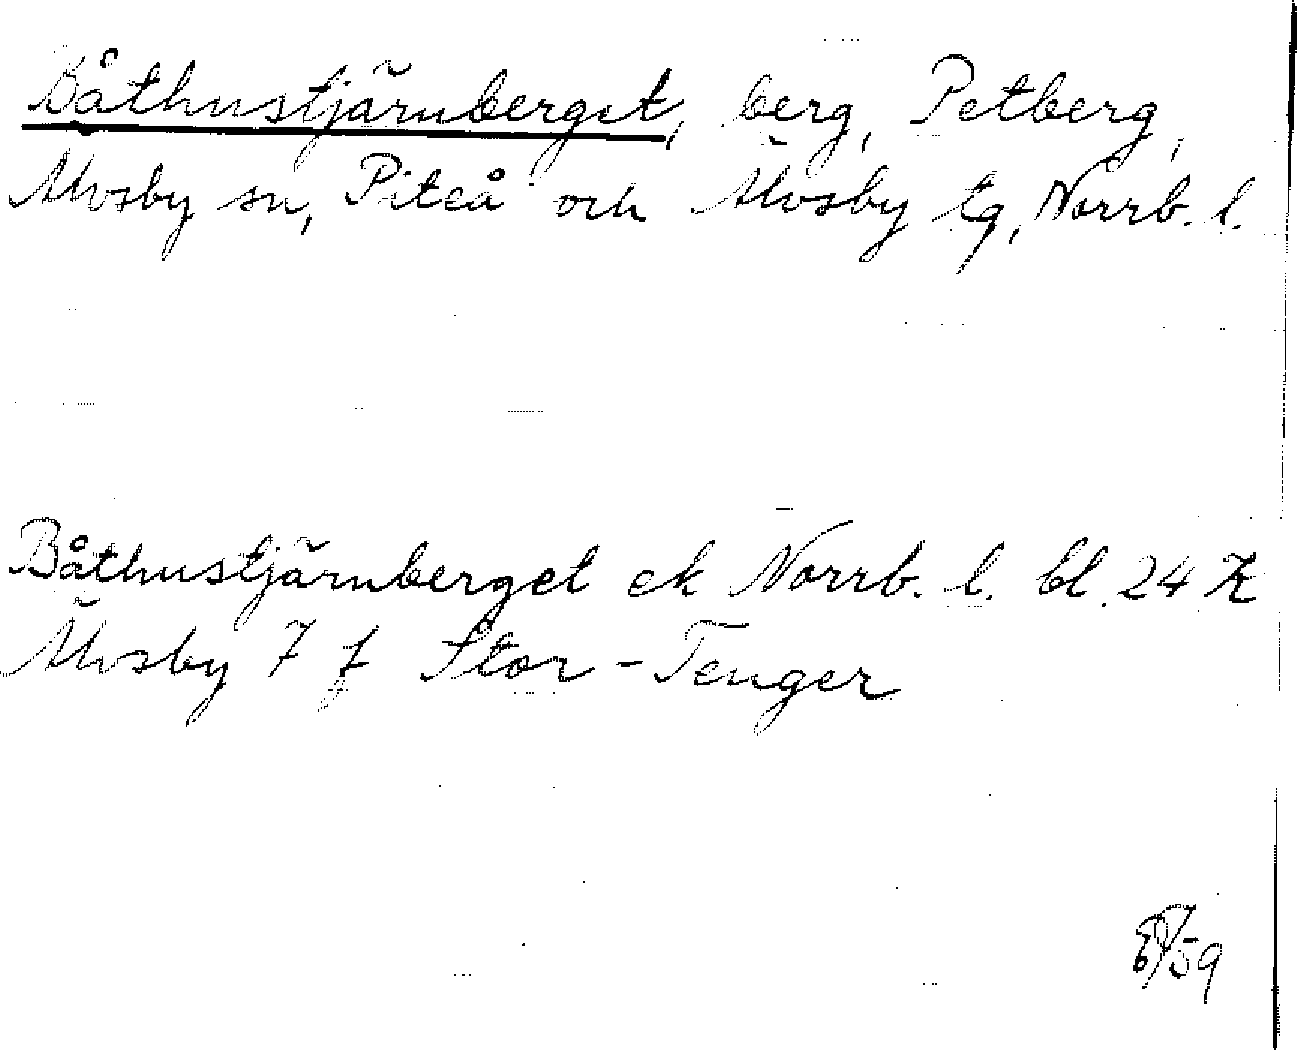 Båthustjärnberget, berg, Petberg,
Älvsby sn, Piteå och Älvsby tg, Norrb. l.
Båthustjärnberget ek Norrb. l. bl. 24 K
Älvsby 7 f Stor-Tenger
/59